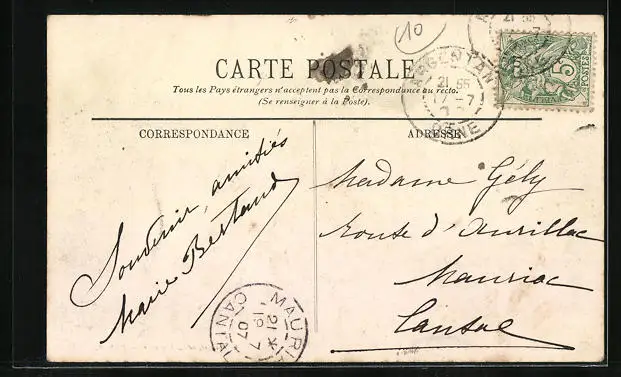 10
CARTE POSTALE
Tous les Pays étrangers n'acceptent pas la Correspondance au recto.
(Se renseigner à la Poste).
ARGENTAN
21 55
17-7
ORNE
5
POSTES
CORRESPONDANCE
ADRESSE
Souvenir, amitiés
Marie Bertand
Madame Gély
Route d'Aurillac
Mauriac
Cantal
MAURIAC
21 *
19 7
07
CANTAL